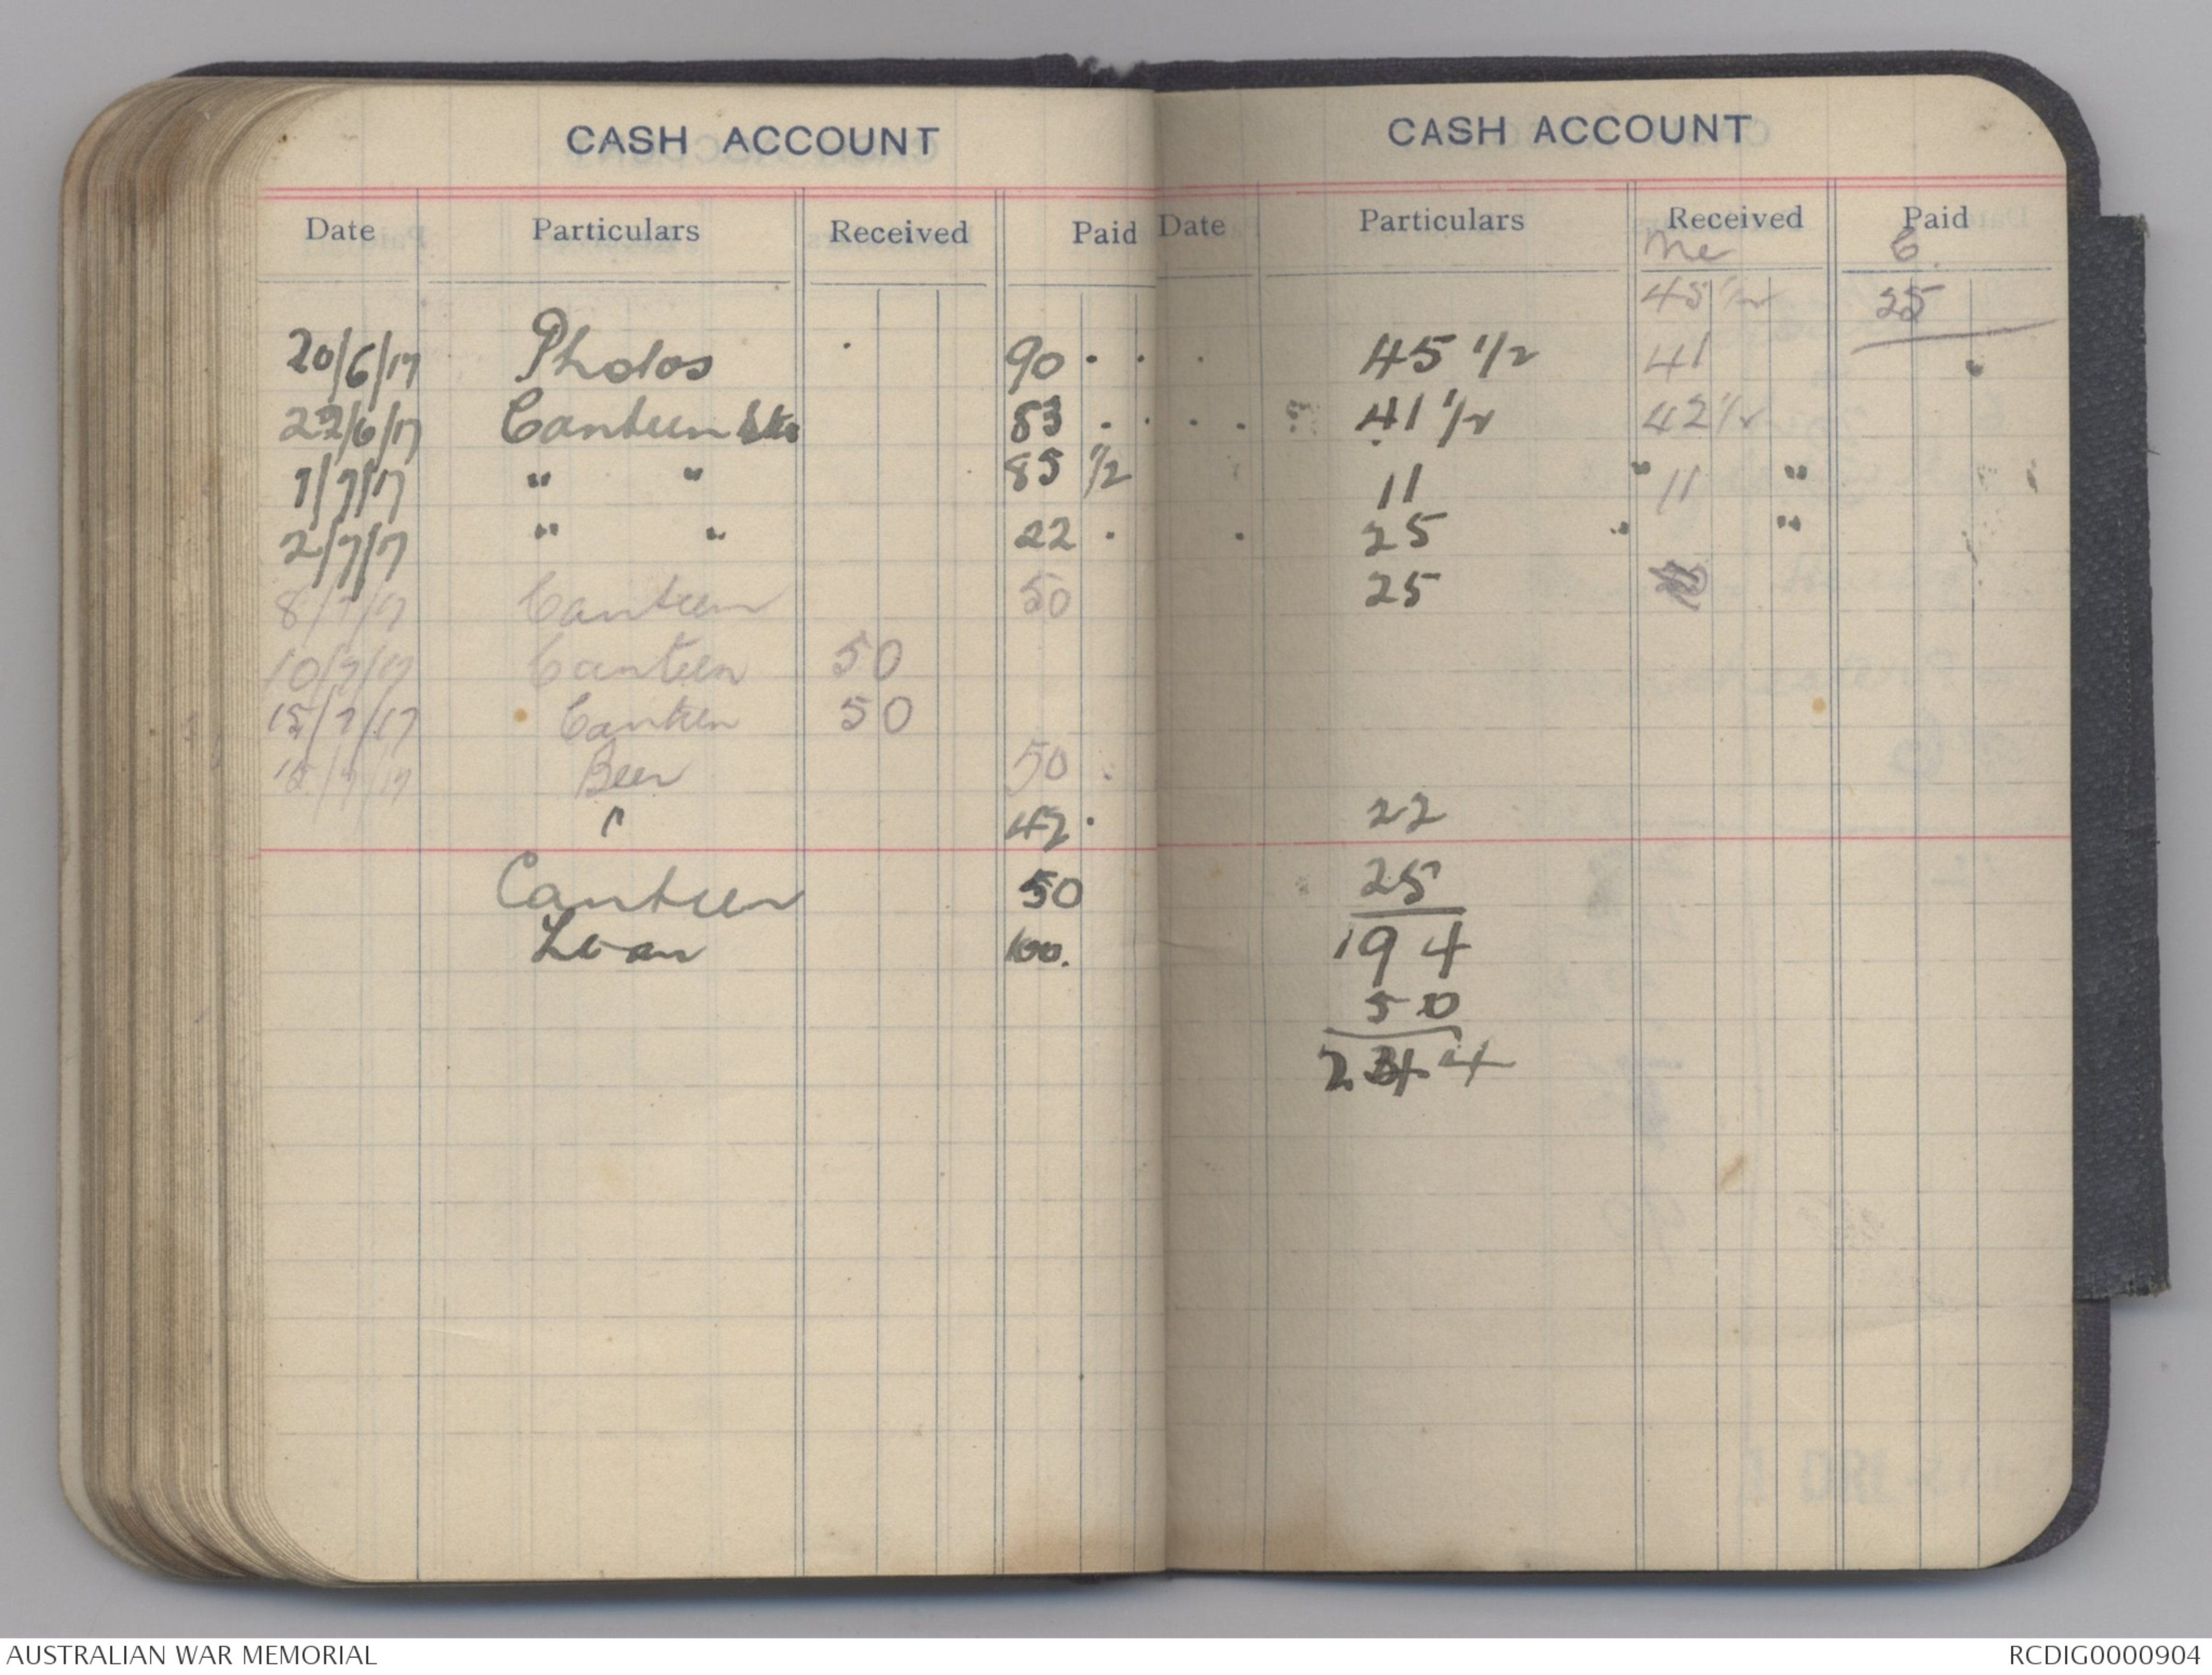 CASH ACCOUNT
Date Particulars Received Paid
20/6/17 Photos 90
22/6/17 Canteen 83
1/7/17 " " 85 1/2
2/7/17 " " 22
8/7/17 Canteen 50
10/7/17 Canteen 50
15/7/17 Canteen 50
15/7/17 Beer 50
" 42
Canteen 50
Loan 100.
CASH ACCOUNT
Date Particulars Received Paid
Me
45 1/2 25
45 1/2 41
41 1/2 42 1/2
11 " 11 "
25 " "
25
22
25
194
50
244
AUSTRALIAN WAR MEMORIAL
RCDIG0000904